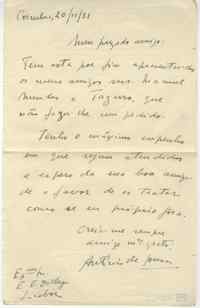 Coimbra, 20/11/31
Meu prezado amigo:
Tem esta por fim apresentar-lhe
os meus amigos srs. Manuel
Mendes e, que
vão fazer-lhe um pedido.
Tenho o máximo empenho
em que sejam atendidos
e espero da sua boa amizade
o favor de os tratar
como se eu próprio fosse.
Creia-me sempre
amigo mto grato,
António de Sousa
Lisboa